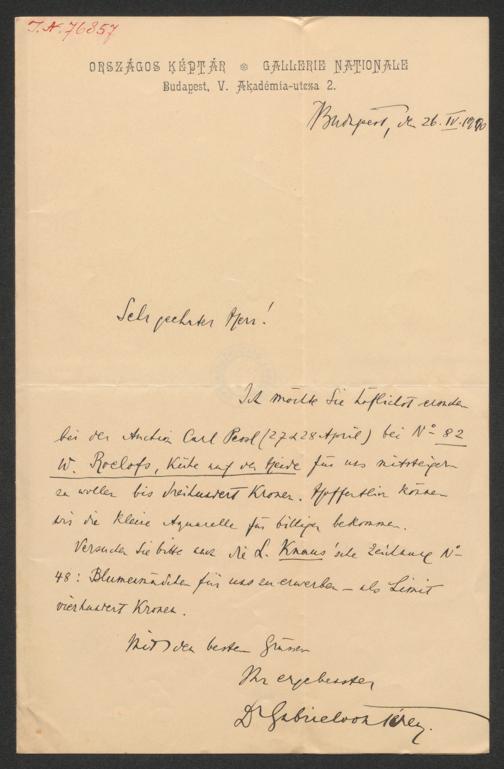 I.N. 76857
ORSZÁGOS KÉPTÁR * GALLERIE NATIONALE
Budapest, V. Akadémia-utcza 2.
Budapest, den 26. IV. 1910
Sehr geehrter Herr!
Ich möchte Sie höflichst
bei der Auction Carl (27 & 28 April) bei No 82
W. Roelofs, Kühe auf der Heide für uns mitsteigern
zu wollen bis dreihundert Kronen. Hoffentlich können
wir die kleine Aquarelle für billiger bekommen.
Versuchen Sie bitte auch die L. Knaus'sche Zeichnung No
48: Blumenmädchen für uns zu erwerben – als Limit
vierhundert Kronen.
Mit den besten Grüssen
Ihr ergebenster
Dr Gabriel von Térey